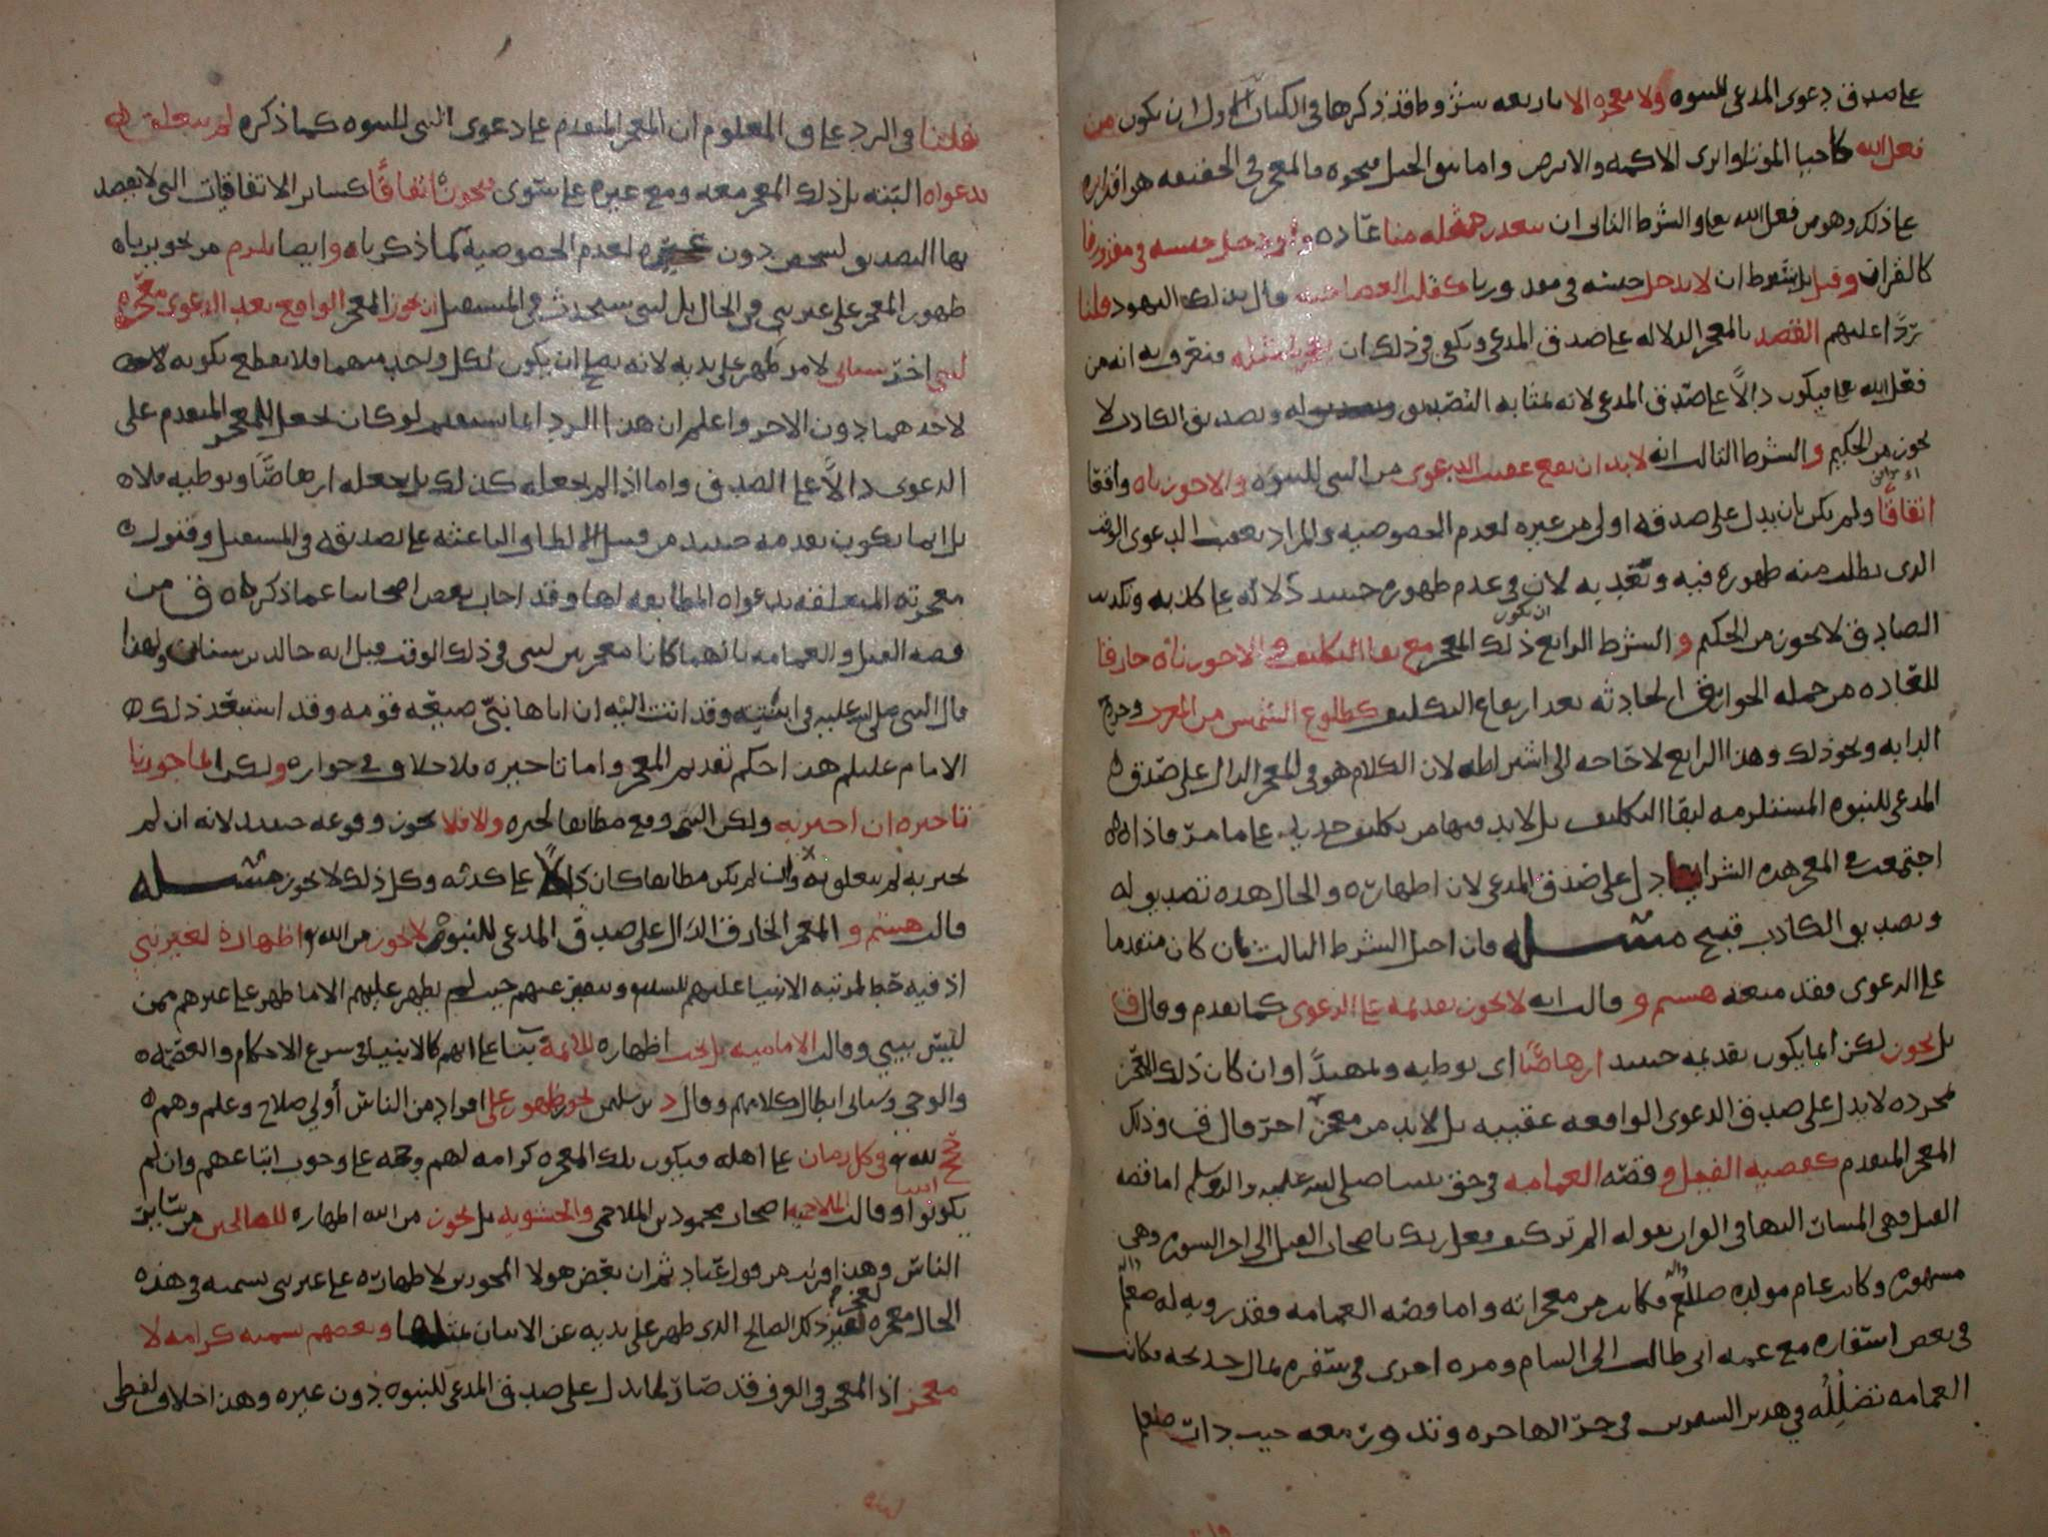 على صدق دعوى المدعي للنبوه ولا معجزه الا باربعه شروط قد ذكرها في الكتاب الاول ان يكون من
فعل الله كاحيا الموتى وابرى الاكمه والابرص واما نتق الجبل ونحوه فالمعجز في الحقيقه هو اقداره
على ذلك وهو من فعل الله تعالى والشرط الثاني ان يتعذر مثله منا عاده وان دخل جنسه في مقدورنا
كالقران وقيل بل يشترط ان لا يدخل جنسه في مقدورنا كقلب العصا حيه قال بذلك اليهود قلنا
ردًا عليهم القصد بالمعجز الدلاله على صدق المدعي ويكفي في ذلك ان يعجز مثله فنعرف به انه من
فعل الله تعالى فيكون دالًا على صدق المدعي لانه بمثابه التصديق له وتصديق الكاذب لا
يجوز من الحكيم والشرط الثالث انه لابد ان يقع عقيب الدعوى من النبي للنبوه والا جوزناه واقعا
اتفاقًا ولم يكن بان يدل على صدقه اولى من غيره لعدم الخصوصيه والمراد بعقيب الدعوى الوقت
الذي يطلب منه ظهوره فيه وتحديه لان في عدم ظهوره حينيد دلاله على كذبه وتكذيب
الصادق لا يجوز من الحكيم والشرط الرابع ان يكون ذلك المعجز مع بقا التكليف والا جوزناه خارقا
للعاده من جمله الخوارق الحادثه بعد ارتفاع التكليف كطلوع الشمس من المغرب وخروج
الدابه ونحو ذلك وهذا الرابع لا حاجه الى اشتراطه لان الكلام هو في المعجز الدال على صدق
المدعي للنبوه المستلزمه لبقا التكليف بل لابد فيها من تكليف جديد على ما مر فاذا
اجتمعت في المعجز هذه الشرايط دل على صدق المدعي لان اظهاره والحال هذه تصديق له
وتصديق الكاذب قبيح مسله فان اختل الشرط الثالث بان كان متقدما
على الدعوى فقد منعه هشم و قالت انه لا يجوز تقدمه على الدعوى كما تقدم وقال ق
بل يجوز لكن انما يكون تقديمه حينيد ارهاصًا اي توطيه وتمهيدًا وان كان ذلك المعجز
بمجرده لا يدل على صدق الدعوى الواقعه عقيبه بل لابد من معجز اخر قال ق وذلك
المعجز المتقدم كقصه الفيل و قصه الغمامه في حق نبينا صلى الله عليه واله وسلم اما قصه
الفيل فهي المشار اليها في القران بقوله الم تر كيف فعل ربك باصحاب الفيل الى اخر السوره وهي
مشهوره وكانت عام مولده صللم فكانت من معجزاته واما قصه الغمامه فقد رويه له صلعم
في بعض اسفاره مع عمه ابي طالب الى الشام ومره اخرى في سفره بمال خديجه فكانت
الغمامه تضلله في هذين السفرين في حر الهاجره وتدور معه حيث دار صلعم
قلنا في الرد على ق المعلوم ان المعجز المتقدم على دعوى النبي للنبوه كما ذكره لم يتعلق
بدعواه البته بل ذلك المعجز معه ومع غيره على سوى فيجوز اتفاقًا كساير الاتفاقيات التي لا يقصد
بها التصديق لشخص دون غيره لعدم الخصوصيه كما ذكرناه وايضا يلزم من تجويزناه
ظهور المعجز على غير نبي في الحال بل لنبي سيحدث في المستقبل ان يجوز المعجز الواقع بعد الدعوى معجزه
لنبي اخر سياتي لا من ظهر على يديه لانه يصح ان يكون لكل واحد منهما فلا يقطع بكونه
لاحدهما دون الاخر واعلم ان هذا الرد انما يستقيم لو كان يجعل المعجز المتقدم على
الدعوى دالًا على الصدق واما اذا لم يجعله كذلك بل يجعله ارهاصًا وتوطيه فلا
بل انما يكون تقدمه حينيد من قبيل الالطاف الباعثه على تصديقه في المستقبل وقبول
معجزته المتعلقه بدعواه المطابقه لها وقد اجاب بعض اصحابنا عما ذكره ق من
قصه الفيل والغمامه بانهما كانا معجزين لنبي في ذلك الوقت قيل انه خالد بن سنان ولهذا
قال النبي صلى الله عليه في ابنته وقد اتت اليه ان اباها نبي ضيعه قومه وقد استبعد ذلك
الامام عليلم هذا حكم تقديم المعجز واما تاخيره فلا خلاف في جوازه ولكن انما جوزنا
تاخيره ان اخبر به ولكن النبي وقع مطابقا لخبره والا فلا يجوز وقوعه حينيد لانه ان لم
يخبر به لم يتعلق به وان لم يكن مطابقا كان دالًا على كذبه وكل ذلك لا يجوز مسله
قالت هشم و المعجز الخارق الدال على صدق المدعي للنبوه لا يجوز من الله اظهاره لغير نبي
اذ فيه حط لمرتبه الانبيا عليهم السلم وتنفير عنهم حيث لم يظهر عليهم الا ما ظهر على غيرهم ممن
ليس بنبي وقالت الاماميه بل يجب اظهاره للايمه بنا على انهم كالانبيا في شرع الاحكام والعصمه
والوحي وسياتي ابطال كلامهم وقال د بن سلمن يجوز ظهوره على افراد من الناس أولي صلاح وعلم وهم
حجج لله في كل زمان على اهله فيكون تلك المعجزه كرامه لهم وحجه على وجوب اتباعهم وان لم
يكونوا انبيا وقالت الملاحميه اصحاب محمود بن الملاحمي والحشويه بل يجوز من الله اظهاره للصالحين من ساير
الناس وهذا قريب من قول عباد ثم ان بعض هولا المجوزين لاظهاره على غير نبي يسميه في هذه
الحال معجزه لعجز غير ذلك الصالح الذي ظهر على يديه عن الاتيان بمثلها وبعضهم يسميه كرامه لا
معجز اذ المعجز في العرف قد صار لما يدل على صدق المدعي للنبوه دون غيره وهذا خلاف لفظي